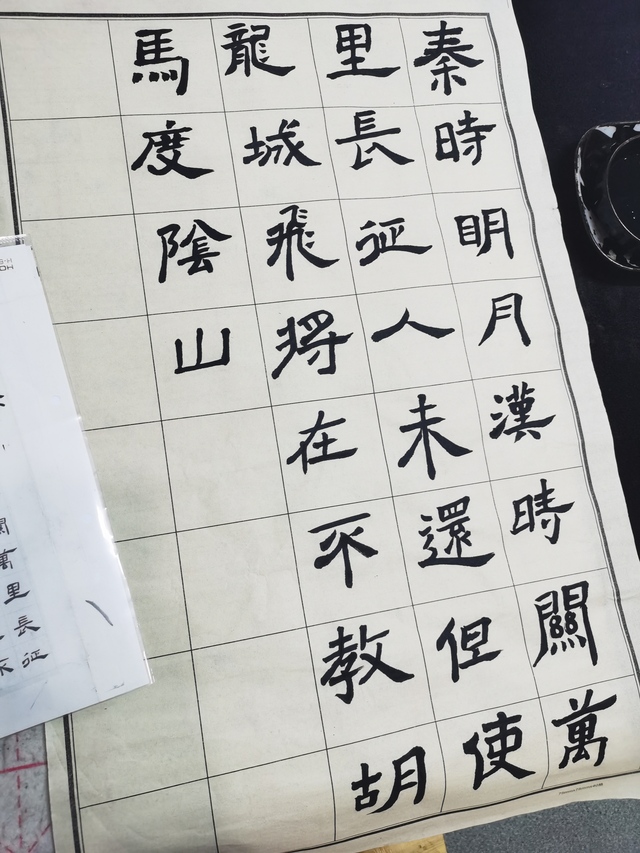 秦時明月漢時關萬
里長征人未還但使
龍城飛將在不教胡
馬度陰山
關萬里長征